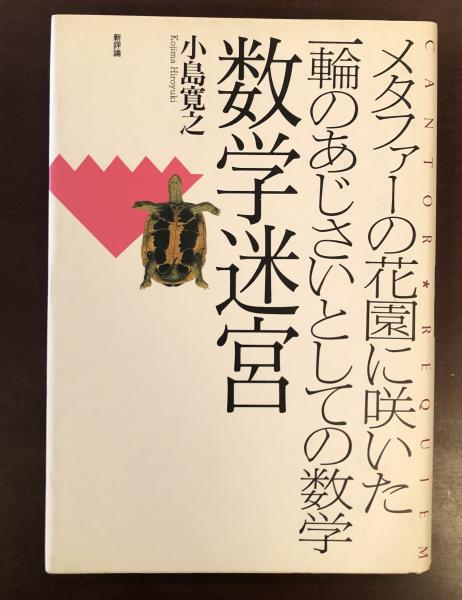 CANTOR * REQUIEM
メタファーの花園に咲いた
一輪のあじさいとしての数学
数学迷宮
小島寛之
Kojima Hiroyuki
新評論